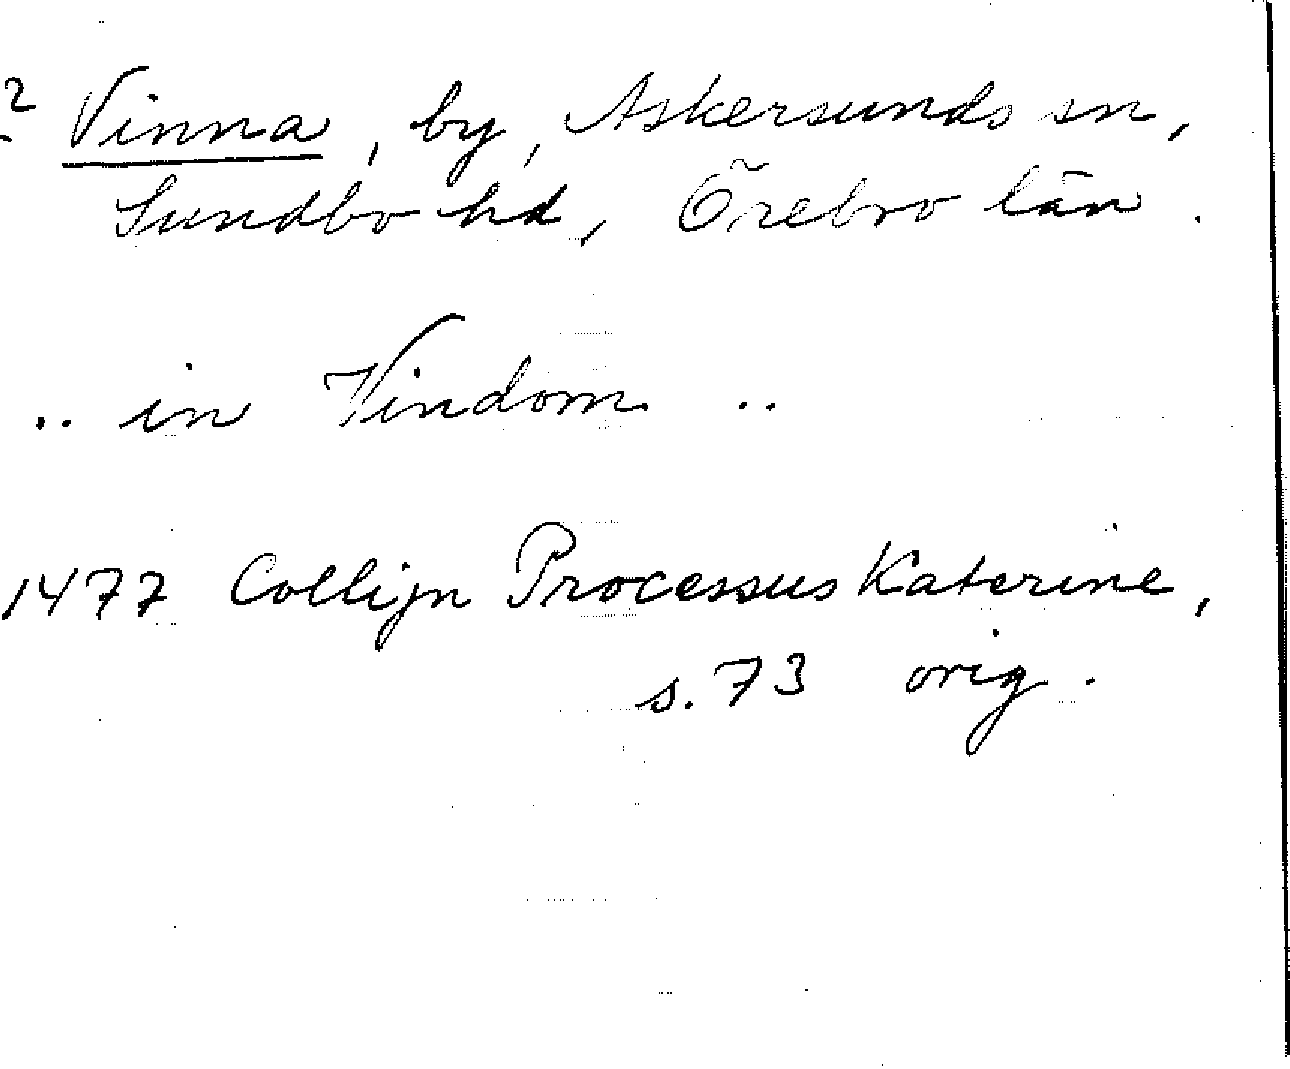 ? Vinna, by, Askersunds sn,
Sundbo hd, Örebro län.
.. in Vindom ..
1477 Collijn Processus Katerine,
s. 73 orig.